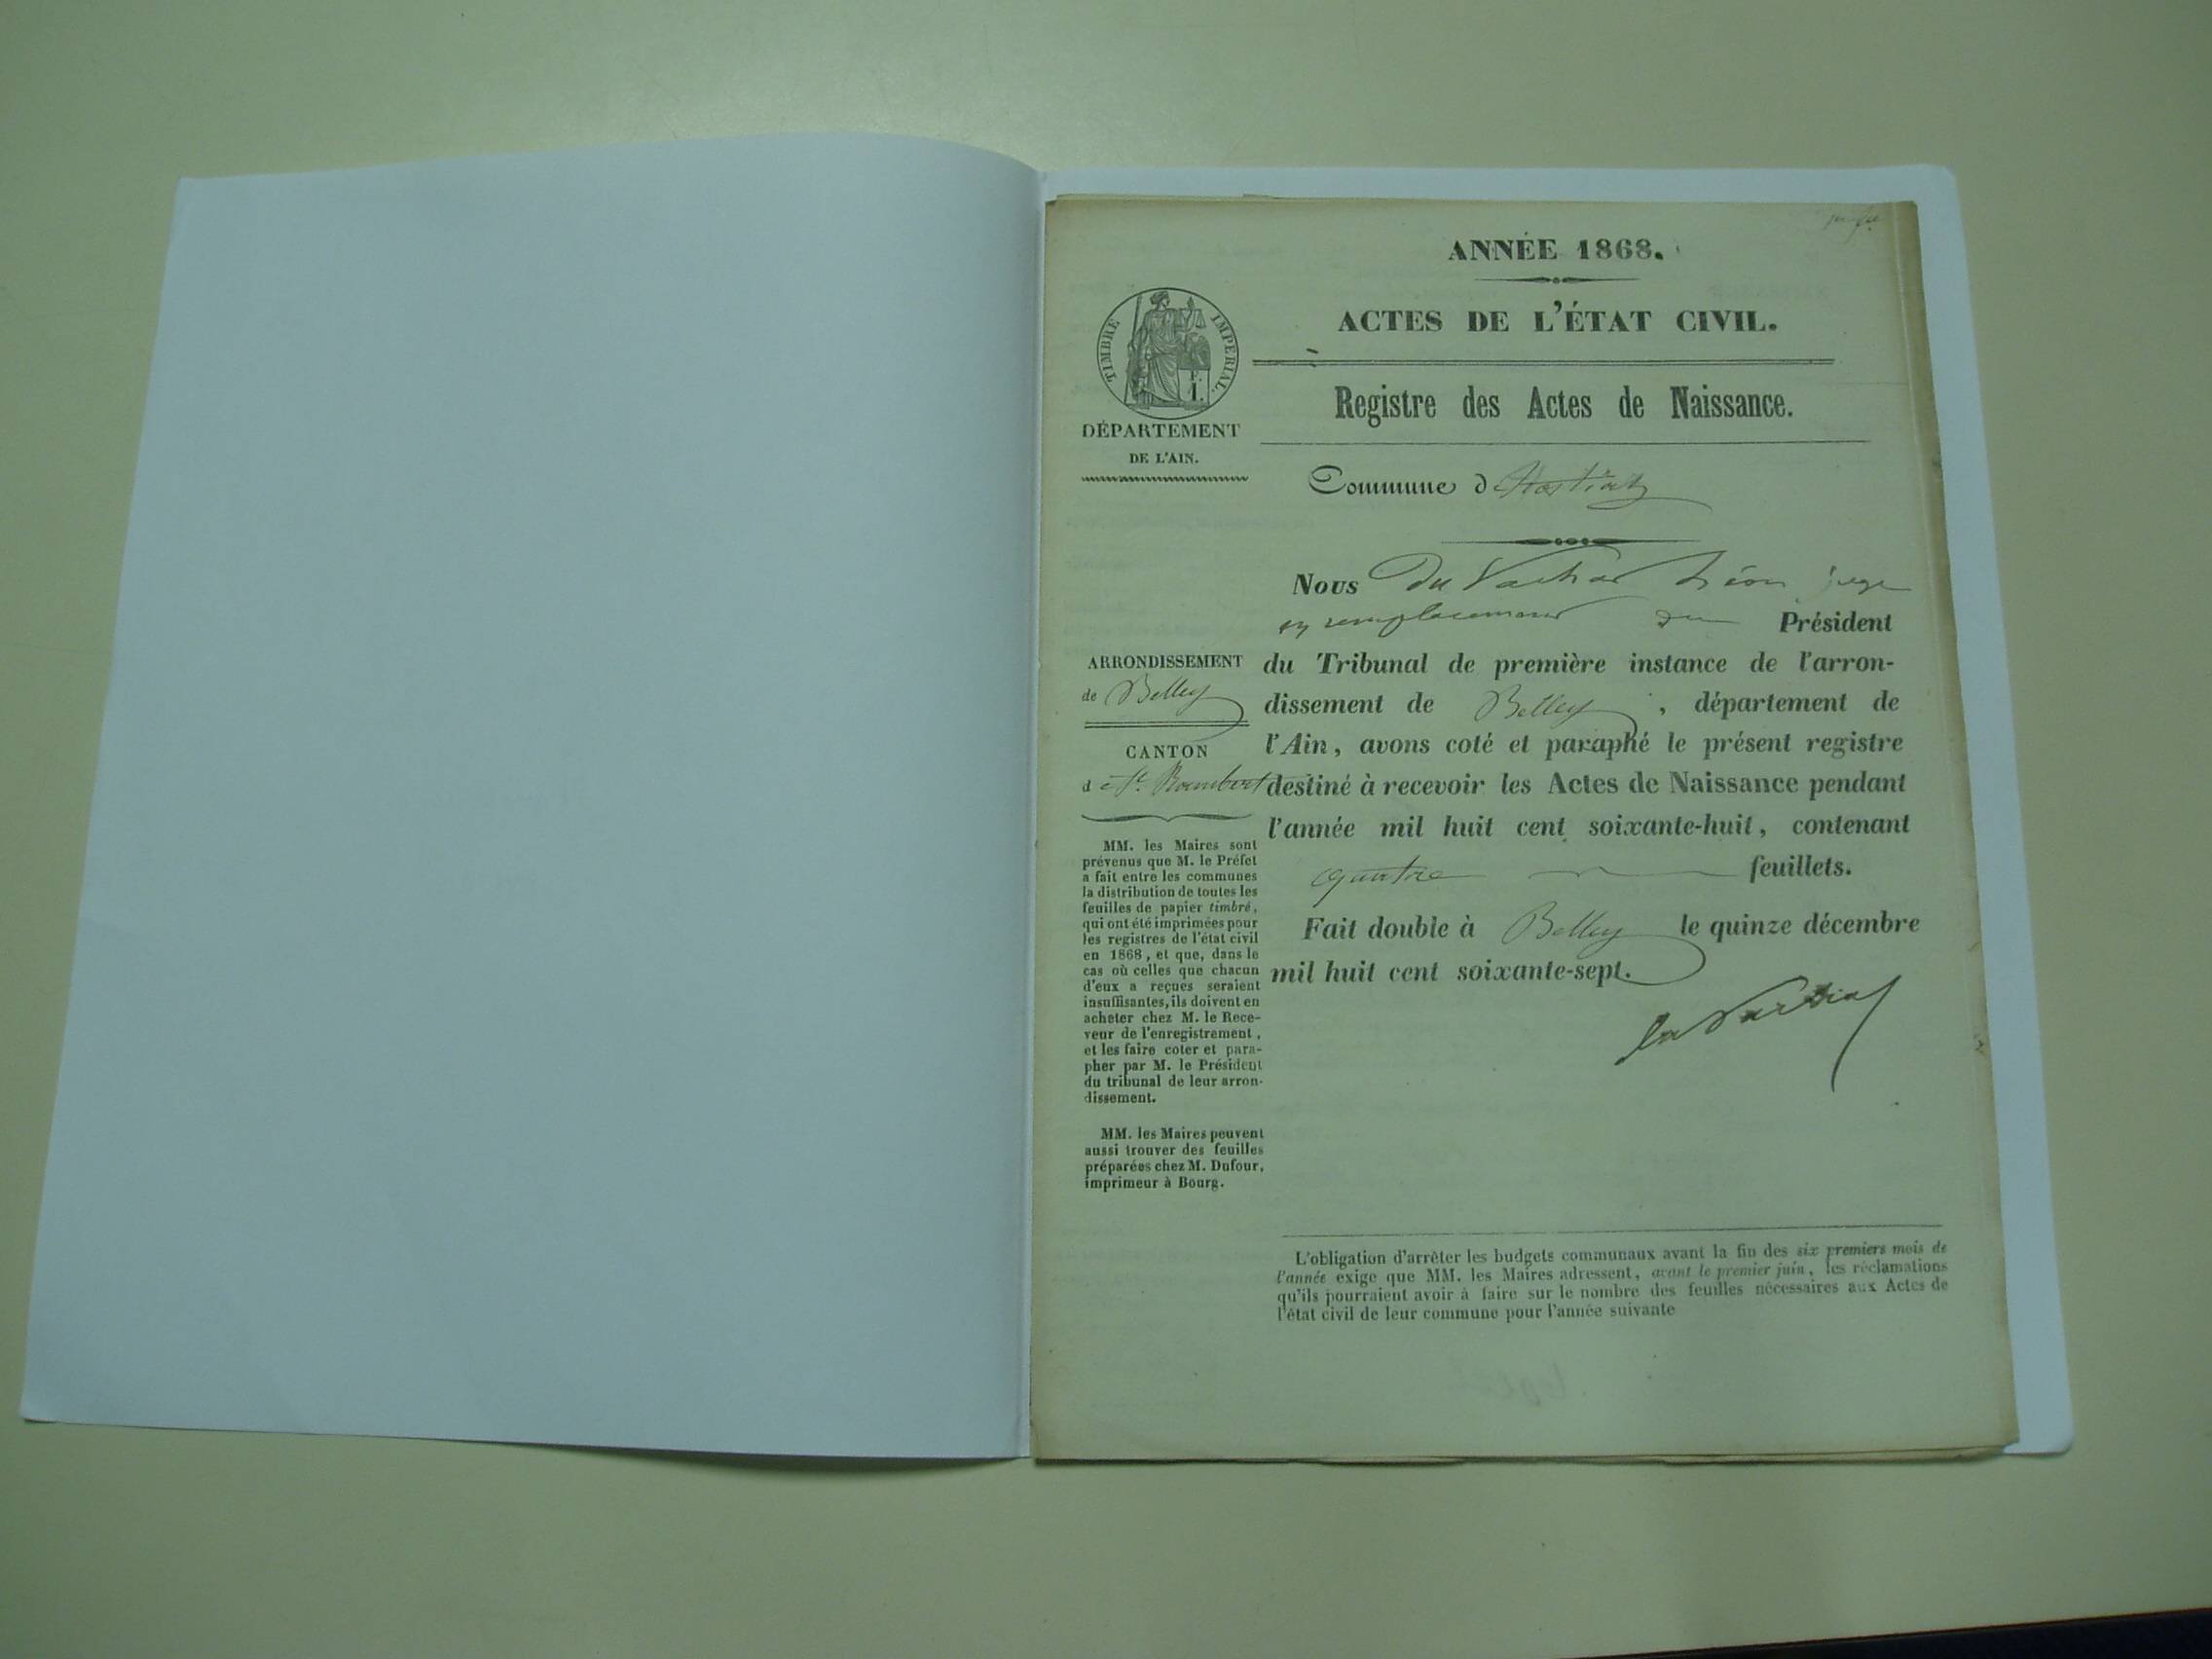 ANNÉE 1868.
ACTES DE L'ÉTAT CIVIL.
TIMBRE IMPERIAL.
DÉPARTEMENT
DE L'AIN.
Registre des Actes de Naissance.
Commune d Hostiaz
Nous Du Léon juge
en remplacement du Président
du Tribunal de première instance de l'arron-
dissement de Belley, département de
l'Ain, avons coté et paraphé le présent registre
destiné à recevoir les Actes de Naissance pendant
l'année mil huit cent soixante-huit, contenant
quatre feuillets.
Fait double à Belley le quinze décembre
mil huit cent soixante-sept.
ARRONDISSEMENT
de Belley
CANTON
d e St. Rambert
MM. les Maires sont
prévenus que M. le Préfet
a fait entre les communes
la distribution de toutes les
feuilles de papier timbré,
qui ont été imprimées pour
les registres de l'état civil
en 1868, et que, dans le
cas où celles que chacun
d'eux a reçues seraient
insuffisantes, ils doivent en
acheter chez M. le Rece-
veur de l'enregistrement,
et les faire coter et para-
pher par M. le Président
du tribunal de leur arron-
dissement.
MM. les Maires peuvent
aussi trouver des feuilles
préparées chez M. Dufour,
imprimeur à Bourg.
L'obligation d'arrêter les budgets communaux avant la fin des six premiers mois de
l'année exige que MM. les Maires adressent, avant le premier juin, les réclamations
qu'ils pourraient avoir à faire sur le nombre des feuilles nécessaires aux Actes de
l'état civil de leur commune pour l'année suivante